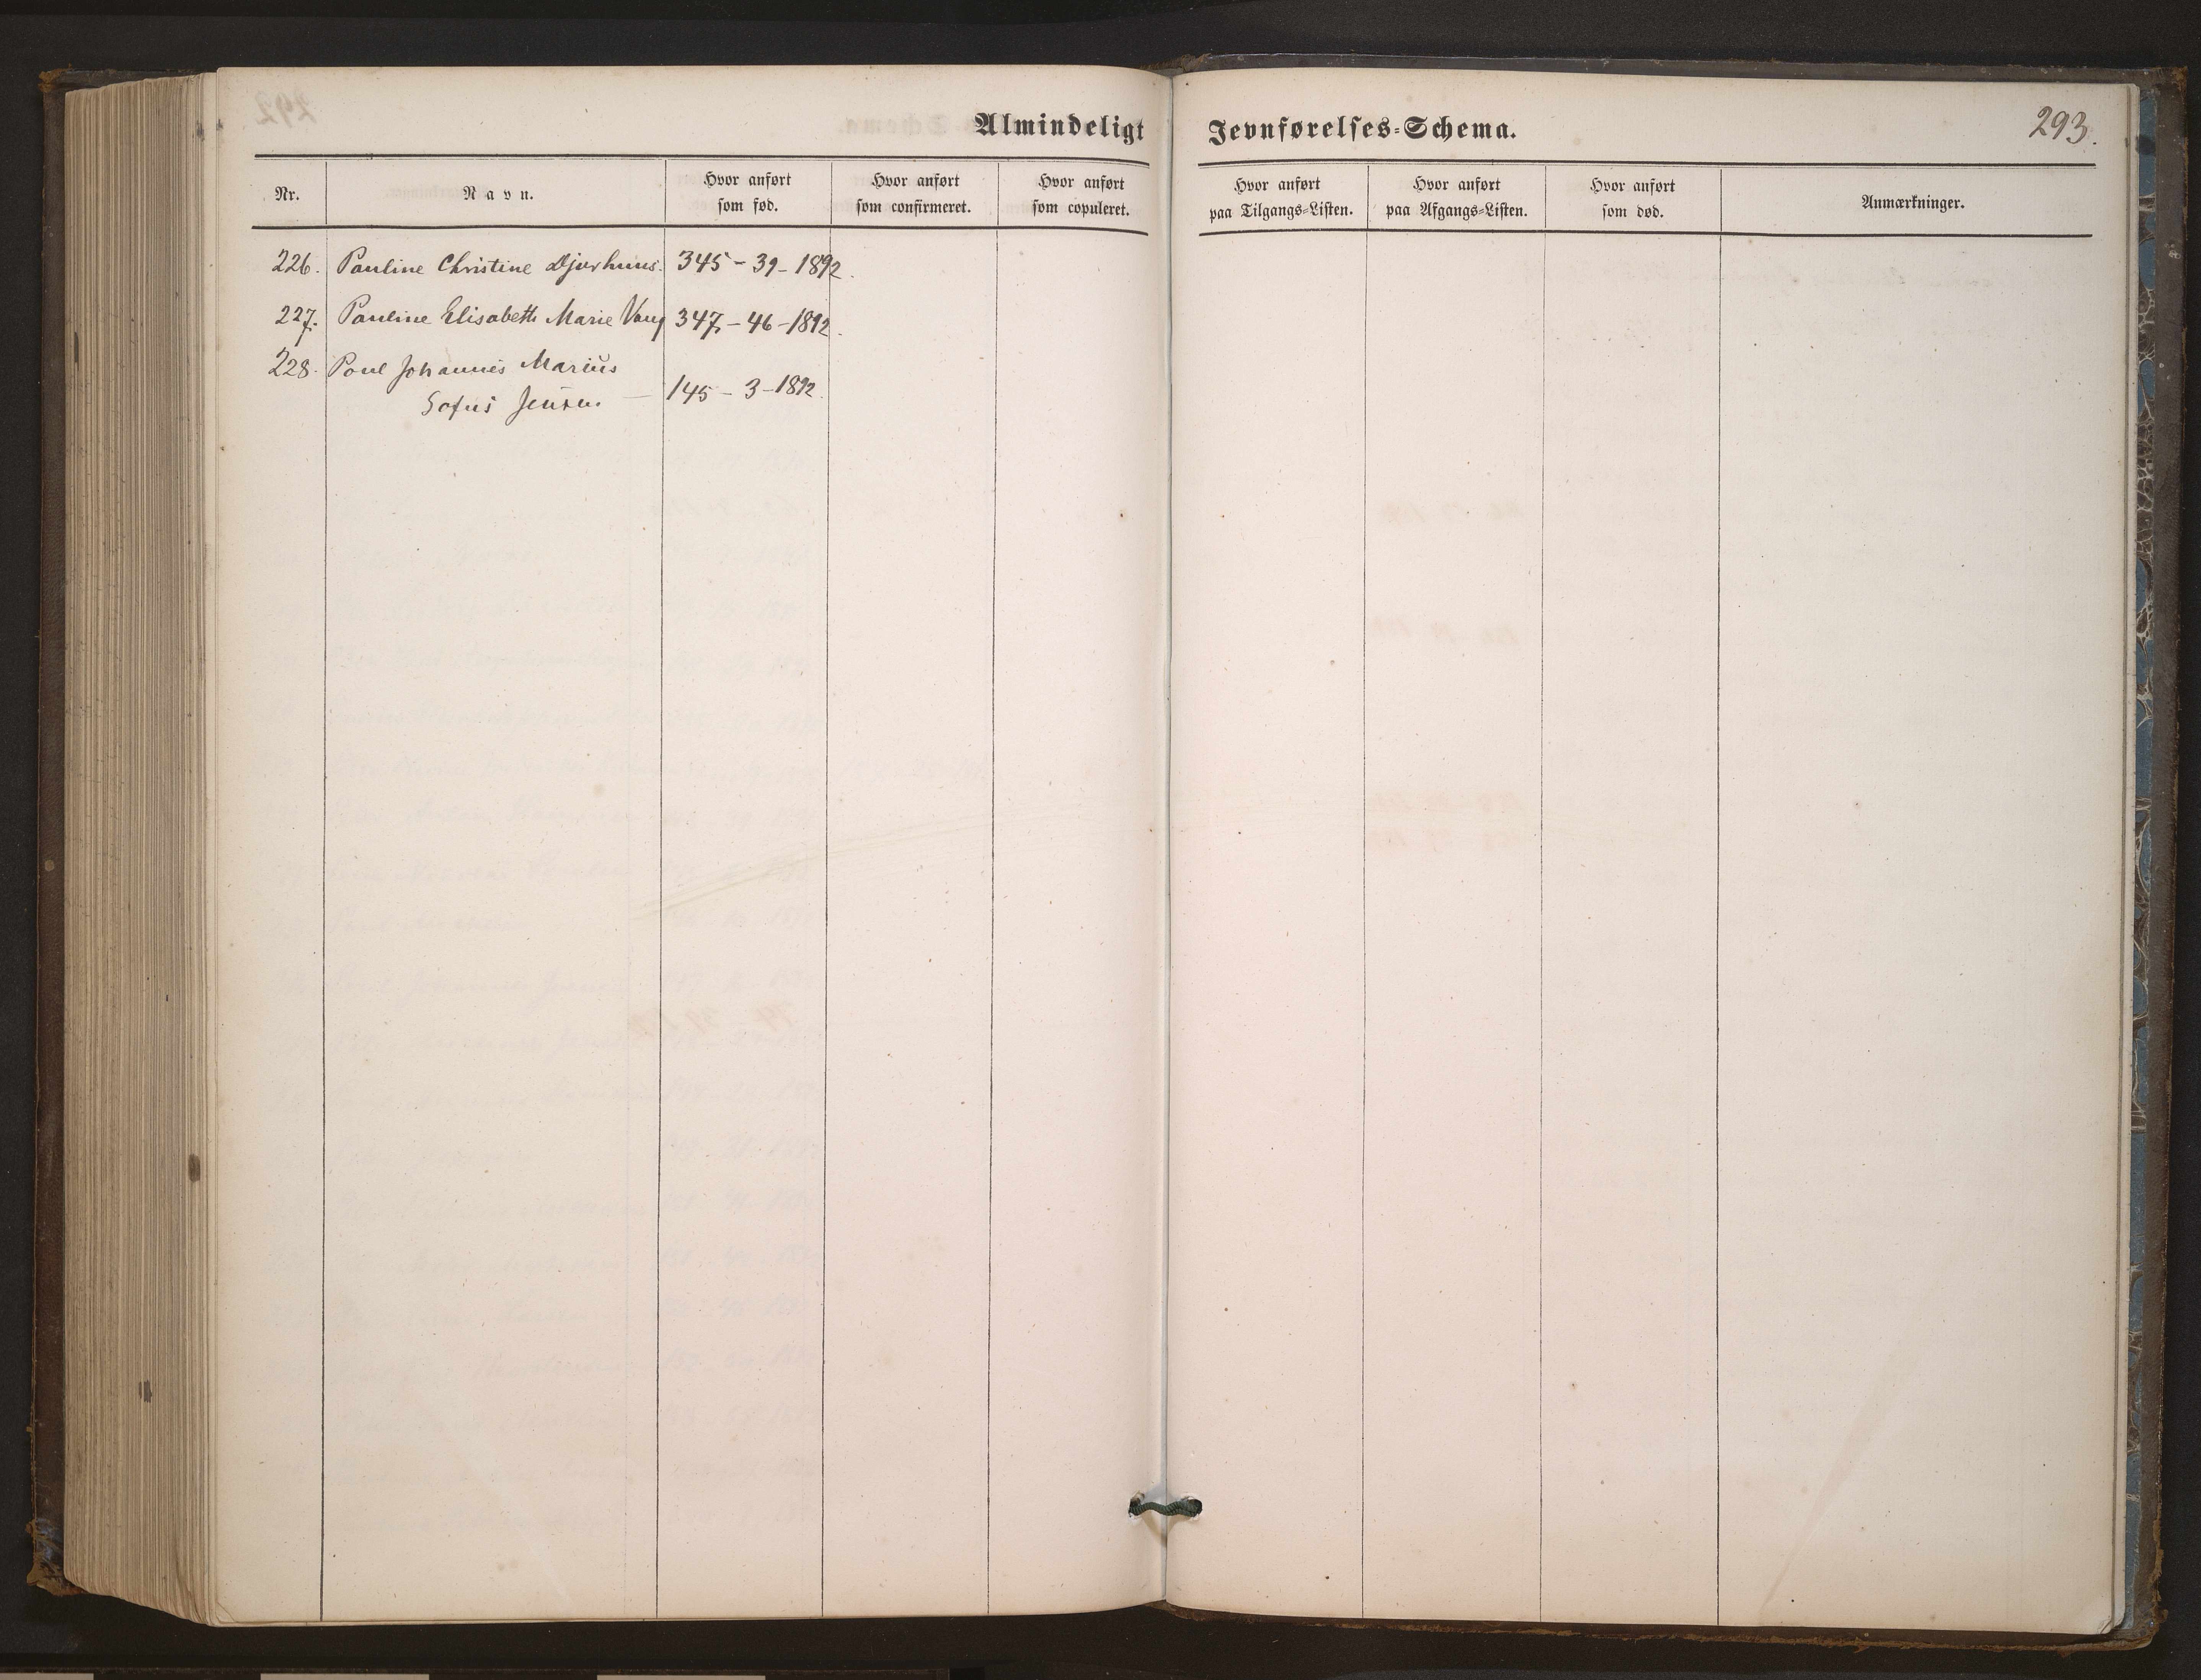 Almindeligt Jevnførelses-Schema. 293.
Nr. Navn. Hvor anført som fød. Hvor anført som confirmeret. Hvor anført som copuleret. Hvor anført paa Tilgangs-Listen. Hvor anført paa Afgangs-Listen. Hvor anført som død. Anmærkninger.
226. Pauline Christine Djurhuus. 345 - 39 - 1892.
227. Pauline Elisabeth Marie Vang 347 - 46 - 1892.
228. Poul Johannes Marius
Sofus Jensen — 145 - 3 - 1892.